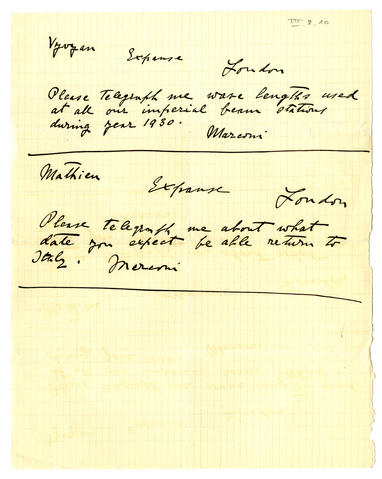 III.8.10
Vyvyan
Expanse
London
Please telegraph me wave lengths used
at all our imperial beam stations
during year 1930.
Marconi
Mathieu
Expanse
London
Please telegraph me about what
date you expect be able return to
Italy.
Marconi